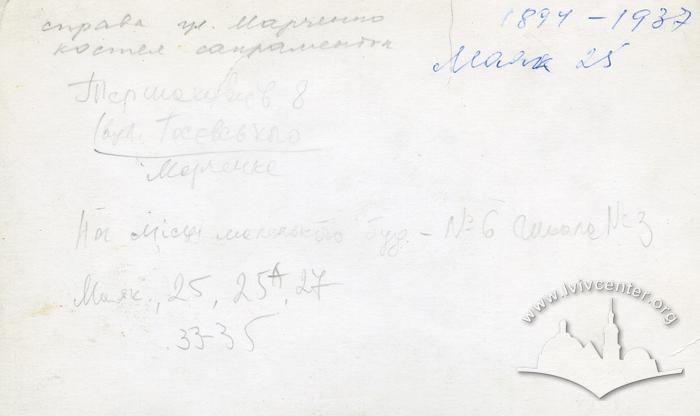 справа ул. Марченко
костел сакраменток
1894 – 1937
Маяк 25
Тершаковців 8
(вул. Госевського
Марченко
На місці маленького буд. – № 6 школа № 3
Маяк., 25, 25А, 27
33-35
www.lvivcenter.org